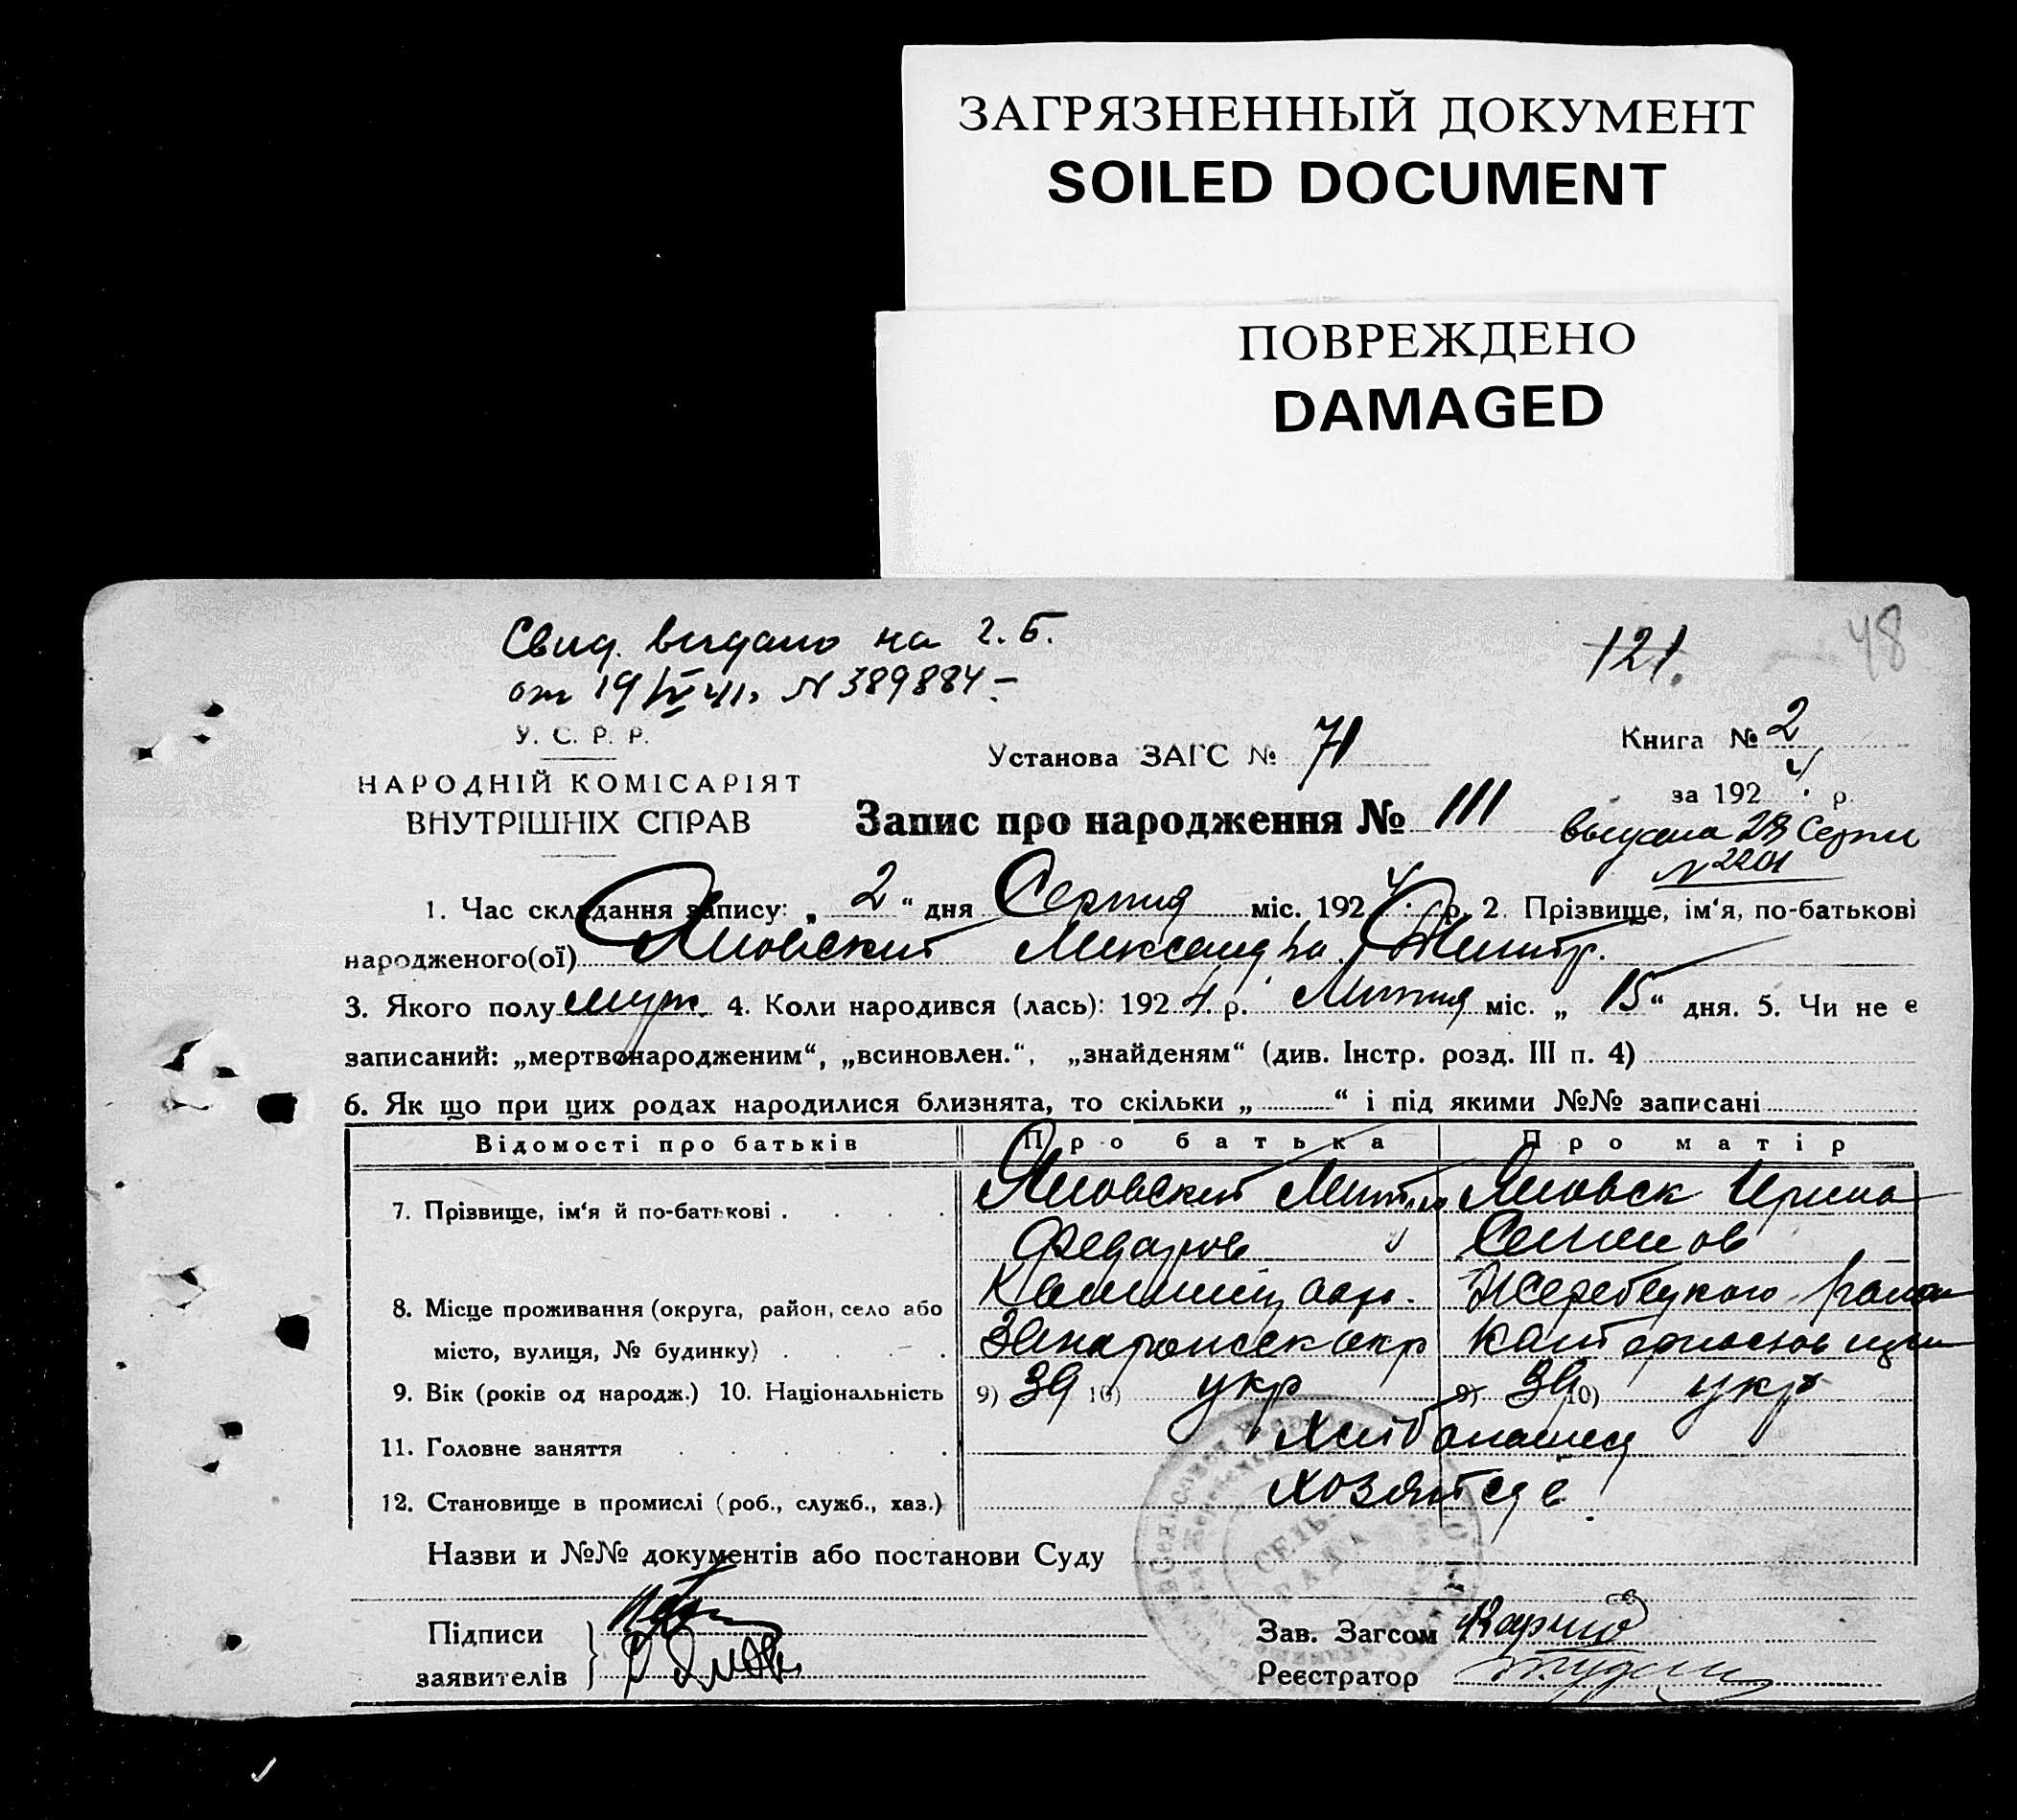 ЗАГРЯЗНЕННЫЙ ДОКУМЕНТ
SOILED DOCUMENT
ПОВРЕЖДЕНО
DAMAGED
Свид. выдано на г. Б.
от 19/IV 41г. № 389884 –
121.
48
У. С. Р. Р.
НАРОДНІЙ КОМІСАРІЯТ
ВНУТРІШНІХ СПРАВ
Установа ЗАГС № 71
Книга № 2
за 1924 р.
Запис про народження № 111
выдана 28 Серпн
№ 2201
1. Час складання запису: „ 2 “ дня Серпня міс. 1924 р. 2. Прізвище, ім‘я, по-батькові
народженого(ої) Яновский Александр Дмитр.
3. Якого полу муж. 4. Коли народився (лась): 1924 р. Липня міс. „ 15 “ дня. 5. Чи не є
записаний: „мертвонародженим“, „всиновлен.“, „знайденям“ (див. Інстр. розд. III п. 4)
6. Як що при цих родах народилися близнята, то скільки „ “ і під якими №№ записані
Відомості про батьків Про батька Про матір
7. Прізвище, ім‘я й по-батькові Яновский Яновск Ирина
Федоров Семенов
8. Місце проживання (округа, район, село або Жеребецкого район
місто, вулиця, № будинку)
9. Вік (років од народж.) 10. Національність 9) 39 10) укр 9) 39 10) укр
11. Головне заняття
12. Становище в промислі (роб., служб., хаз.)
Назви и №№ документів або постанови Суду
СЕЛЬ-
РАДА
Підписи
заявителів
Зав. Загсом
Реєстратор